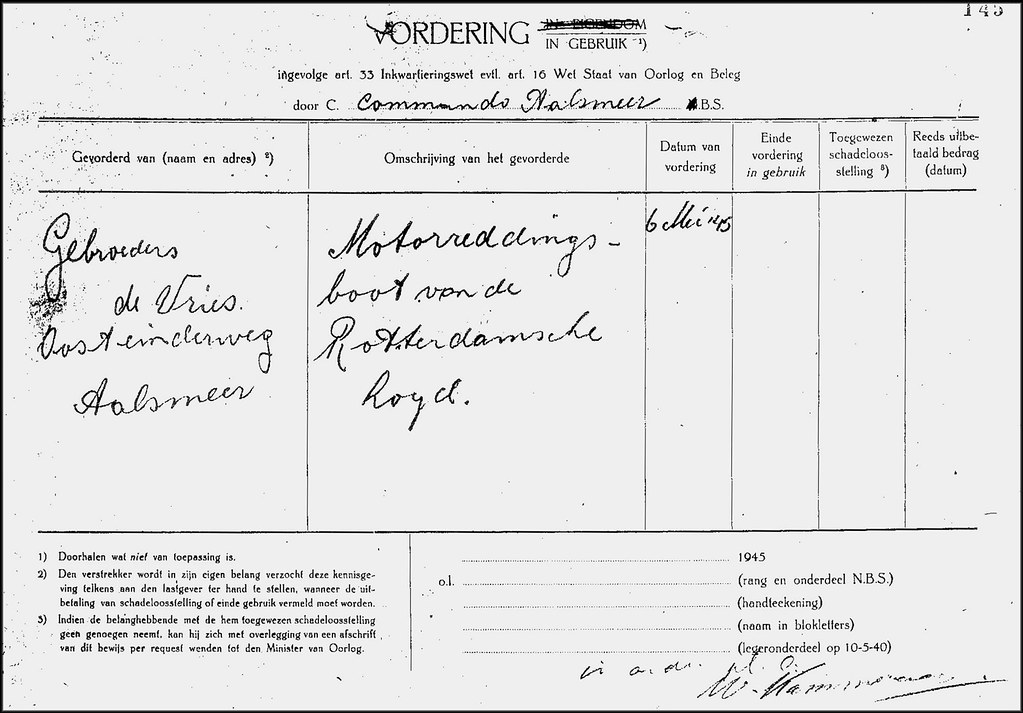 145
VORDERING IN EIGENDOM
IN GEBRUIK ¹)
ingevolge art. 33 Inkwartieringswet evtl. art. 16 Wet Staat van Oorlog en Beleg
door C. Commando Aalsmeer N.B.S.
Gevorderd van (naam en adres) ²)
Omschrijving van het gevorderde
Datum van
vordering
Einde
vordering
in gebruik
Toegewezen
schadeloos-
stelling ³)
Reeds uitbe-
taald bedrag
(datum)
Gebroeders
de Vries.
Oosteinderweg
Aalsmeer
Motorreddings-
boot van de
Rotterdamsche
Loyd.
6 Mei '45
1) Doorhalen wat niet van toepassing is.
2) Den verstrekker wordt in zijn eigen belang verzocht deze kennisge-
ving telkens aan den lastgever ter hand te stellen, wanneer de uit-
betaling van schadeloosstelling of einde gebruik vermeld moet worden.
3) Indien de belanghebbende met de hem toegewezen schadeloosstelling
geen genoegen neemt, kan hij zich met overlegging van een afschrift
van dit bewijs per request wenden tot den Minister van Oorlog.
1945
o.l. (rang en onderdeel N.B.S.)
(handteekening)
(naam in blokletters)
(legeronderdeel op 10-5-40)